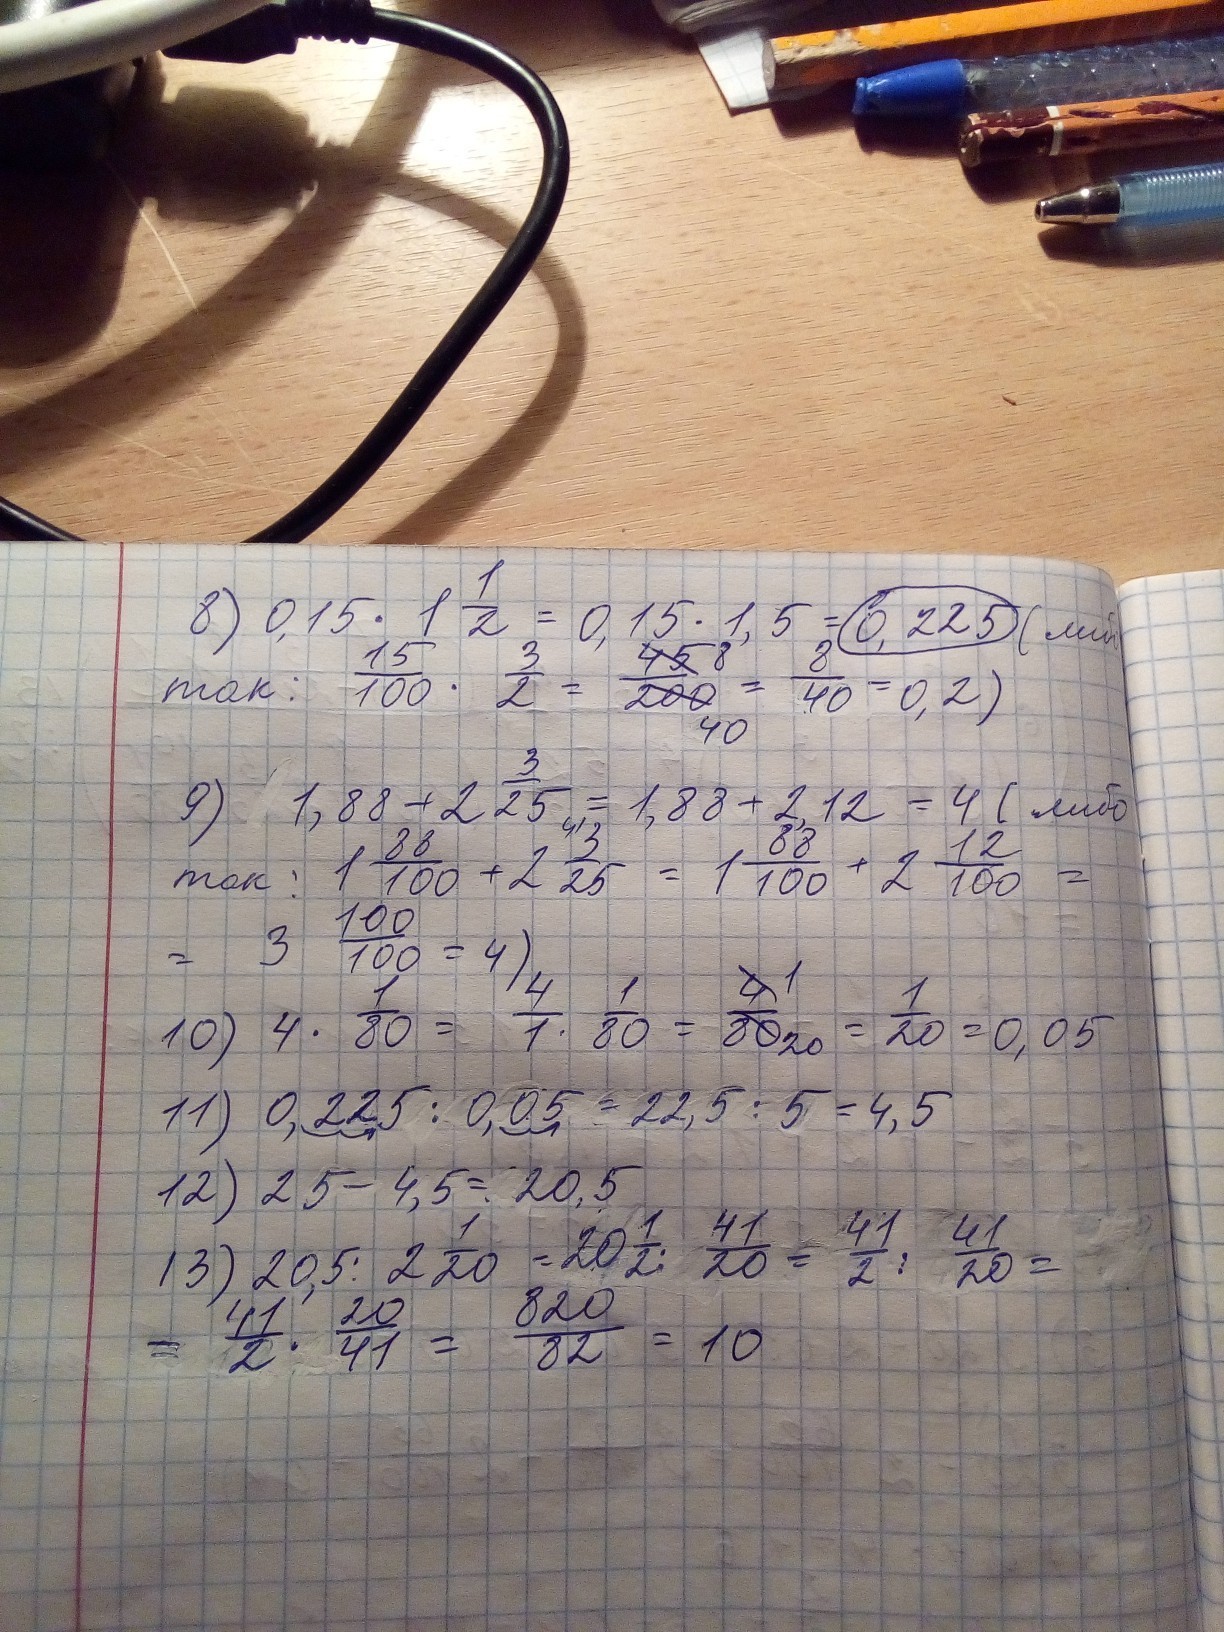 8) 0,15 · 1 1/2 = 0,15 · 1,5 = 0,225 (либо
так: 15/100 · 3/2 = 45/200 8 40 = 8/40 = 0,2)
9) 1,88 + 2 3/25 = 1,88 + 2,12 = 4 (либо
так: 1 88/100 + 2 3/25 4 = 1 88/100 + 2 12/100 =
= 3 100/100 = 4)
10) 4 · 1/80 = 4/1 · 1/80 = 4/80 1 20 = 1/20 = 0,05
11) 0,225 : 0,05 = 22,5 : 5 = 4,5
12) 25 - 4,5 = 20,5
13) 20,5 : 2 1/20 = 20 1/2 : 41/20 = 41/2 : 41/20 =
= 41/2 · 20/41 = 820/82 = 10